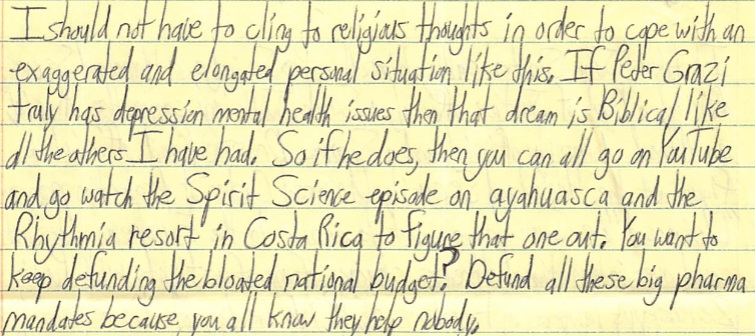 I should not have to cling to religious thoughts in order to cope with an
exaggerated and elongated personal situation like this. If Peter Grazi
truly has depression mental health issues then that dream is Biblical like
all the others I have had. So if he does, then you can all go on YouTube
and go watch the Spirit Science episode on ayahuasca and the
Rhythmia resort in Costa Rica to figure that one out. You want to
keep defunding the bloated national budget? Defund all these big pharma
mandates because you all know they help nobody.